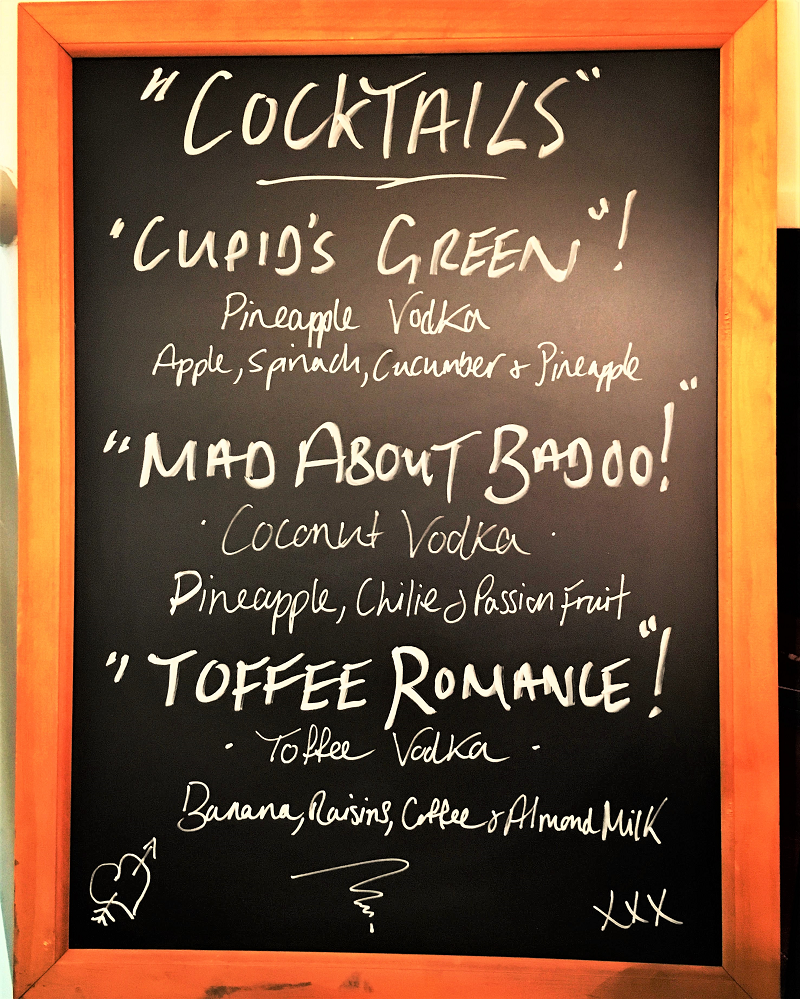 "COCKTAILS"
"CUPID'S GREEN"!
Pineapple Vodka
Apple, Spinach, Cucumber & Pineapple
"MAD ABOUT BADOO!"
· Coconut Vodka ·
Pineapple, Chilie & Passion Fruit
"TOFFEE ROMANCE"!
· Toffee Vodka ·
Banana, Raisins, Coffee & Almond Milk
XXX